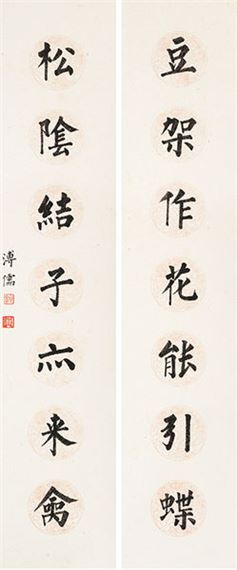 豆架作花能引蝶
松陰結子亦来禽
溥儒